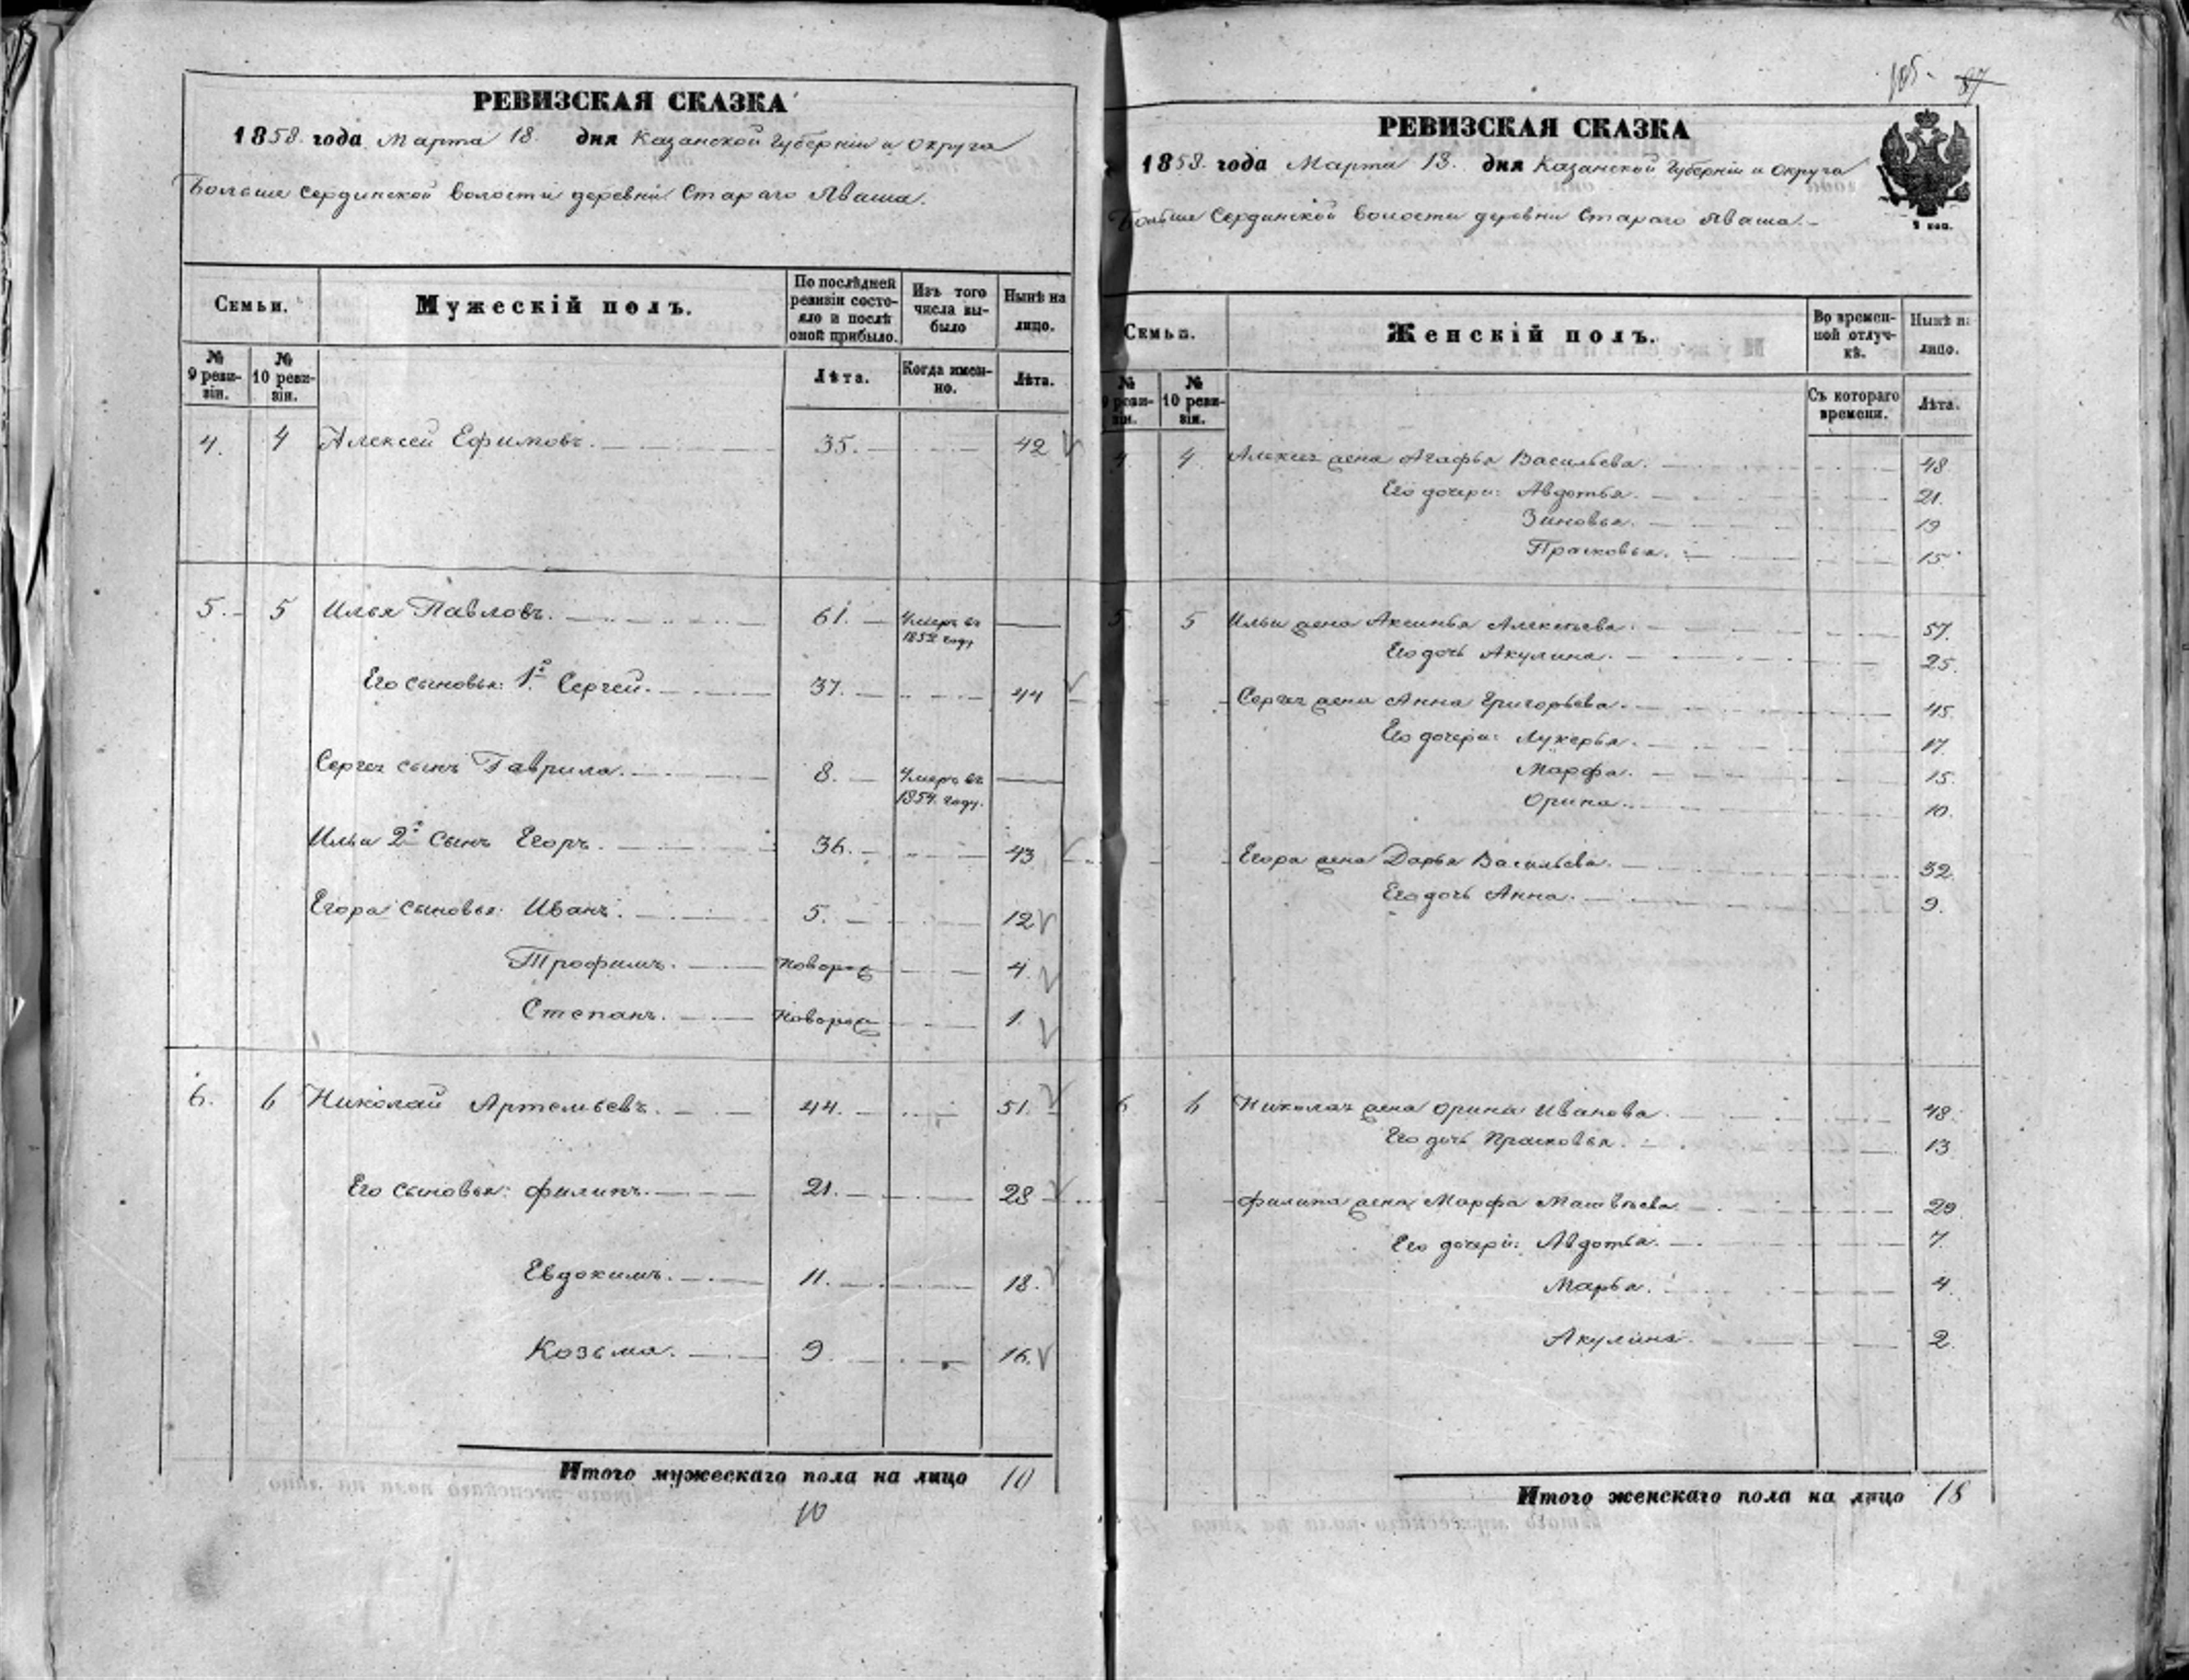 РЕВИЗСКАЯ СКАЗКА
1858. года Марта 18. дня Казанской Губерніи и округа
Больше Сердинской волости деревни Стараго Яваша.
Семьи.
Мужескій полъ.
По послѣдней ревизіи состояло и послѣ оной прибыло.
Изъ того числа выбыло
Нынѣ на лицо.
№ 9 ревизіи.
№ 10 ревизіи.
Лѣта.
Когда именно.
Лѣта.
4. 4 Алексей Ефимовъ. 35. 42
5. 5 Илья Павловъ. 61. Умеръ въ 1852 году
Его сыновья: 1й Сергей. 37. 44
Сергея сынъ Гаврила. 8. Умеръ въ 1854. году.
Ильи 2й сынъ Егоръ. 36. 43
Егора сыновья: Иванъ. 5. 12
Трофимъ. Новорож 4.
Степанъ. Новорож 1.
6. 6 Николай Артемьевъ. 44. 51.
Его сыновья: Филипъ. 21. 28
Евдокимъ. 11. 18.
Козьма. 9. 16.
Итого мужескаго пола на лицо 10
10
185 87
РЕВИЗСКАЯ СКАЗКА
1858. года Марта 18. дня Казанской Губерніи и округа
Больше Сердинской волости деревни Стараго Яваша.
Семьи.
Женскій полъ.
Во временной отлучкѣ.
Нынѣ на лицо.
№ 9 ревизіи.
№ 10 ревизіи.
Съ котораго времени.
Лѣта.
4. 4. Алексея жена Агафья Васильева. 48
Его дочери: Авдотья. 21.
Зиновья. 19
Прасковья. 15
5. 5 Ильи жена Аксинья Алексѣева. 57.
Его дочь Акулина. 25.
Сергея жена Анна Григорьева. 45.
Его дочери: Лукерья. 17.
Марфа. 15.
Орина. 10.
Егора жена Дарья Васильева. 32.
Его дочь Анна. 9.
6. 6 Николая жена Орина Иванова. 48.
Его дочь Прасковья. 13
Филипа жена Марфа Матвѣева. 29
Его дочери: Авдотья. 7.
Марья. 4.
Акулина. 2.
Итого женскаго пола на лицо 18